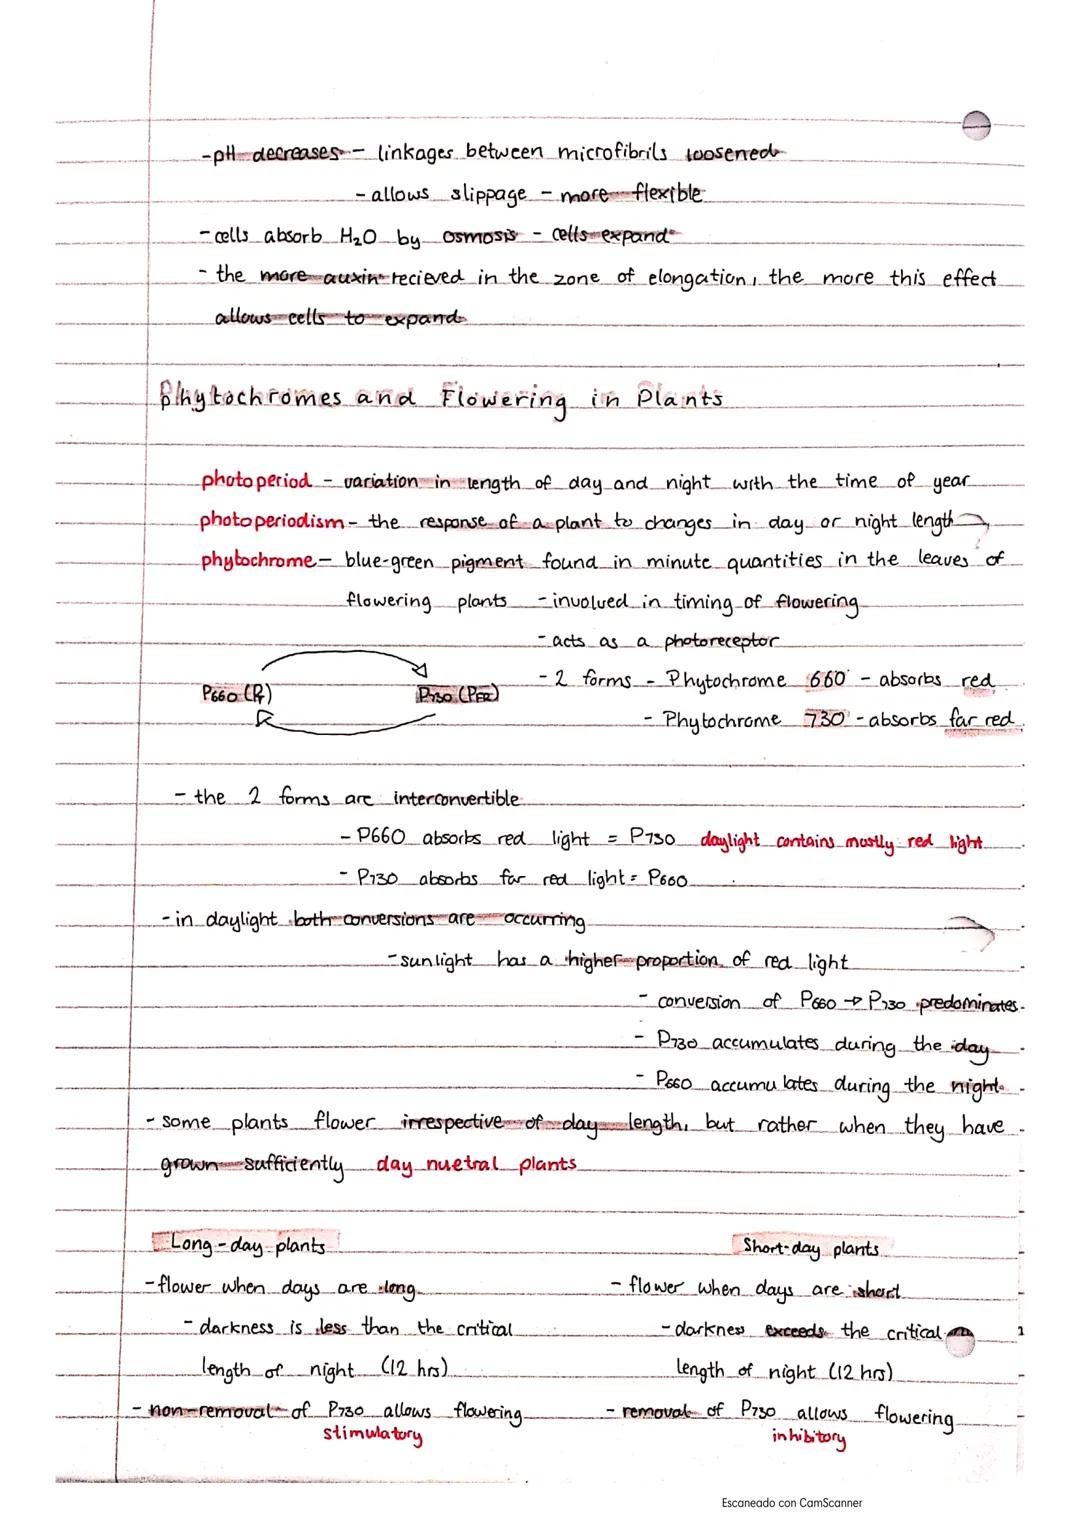 -pH decreases - linkages between microfibrils loosened
- allows slippage - more flexible
- cells absorb H₂O by osmosis - cells expand
- the more auxin recieved in the zone of elongation, the more this effect
allows cells to expand
Phytochromes and Flowering in Plants
photoperiod - variation in length of day and night with the time of year
photoperiodism - the response of a plant to changes in day or night length
phytochrome - blue-green pigment found in minute quantities in the leaves of
flowering plants - involved in timing of flowering
- acts as a photoreceptor
- 2 forms - Phytochrome 660 - absorbs red
P660 (PR) P730 (PFR)
- Phytochrome 730 - absorbs far red
- the 2 forms are interconvertible
- P660 absorbs red light = P730 daylight contains mostly red light
- P730 absorbs far red light = P660
- in daylight both conversions are occurring
- sunlight has a higher proportion of red light
- conversion of P660 → P730 predominates
- P730 accumulates during the day
- P660 accumulates during the night
- some plants flower irrespective of day length, but rather when they have
grown sufficiently day nuetral plants
Long-day plants Short-day plants
- flower when days are long - flower when days are short
- darkness is less than the critical - darkness exceeds the critical
length of night (12 hrs) length of night (12 hrs)
- non-removal of P730 allows flowering - removal of P730 allows flowering
stimulatory inhibitory
Escaneado con CamScanner